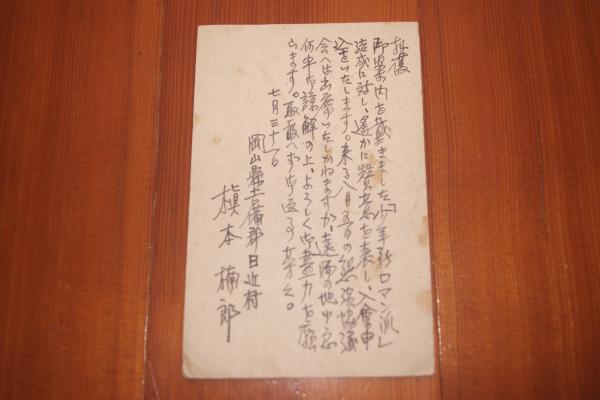 拝復
御案内を戴きました「少年新ロマン派」
結成に対し、遥かに賛意を表し、入会申
込をいたします。来る八月五日の懇談協議
会へは出席いたしかねますが、遠隔の地ゆゑ
何卒御諒解の上、よろしく御盡力を願
ひます。取敢へず御返事まで。
七月三十一日
岡山縣吉備郡日近村
槇本楠郎